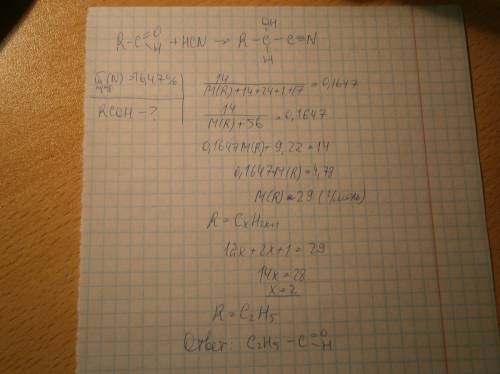 OH
R-C=O H + HCN → R-C-C≡N
H
ω(N)=16,47%
RCOH-?
14 / M(R)+14+24+1+17 = 0,1647
14 / M(R)+56 = 0,1647
0,1647M(R)+9,22=14
0,1647M(R)=4,78
M(R)=29 (г/моль)
R=CxH2x+1
12x+2x+1=29
14x=28
x=2
R=C2H5
Ответ: C2H5-C=O H